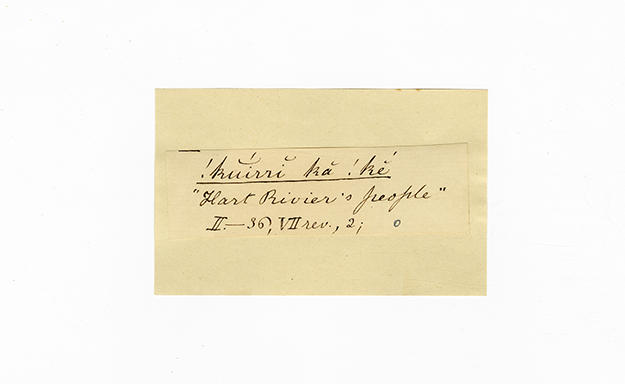 !kŭírrĭ kă !kḗ
"Hart Rivier's people"
II.—36, VII rev., 2; o